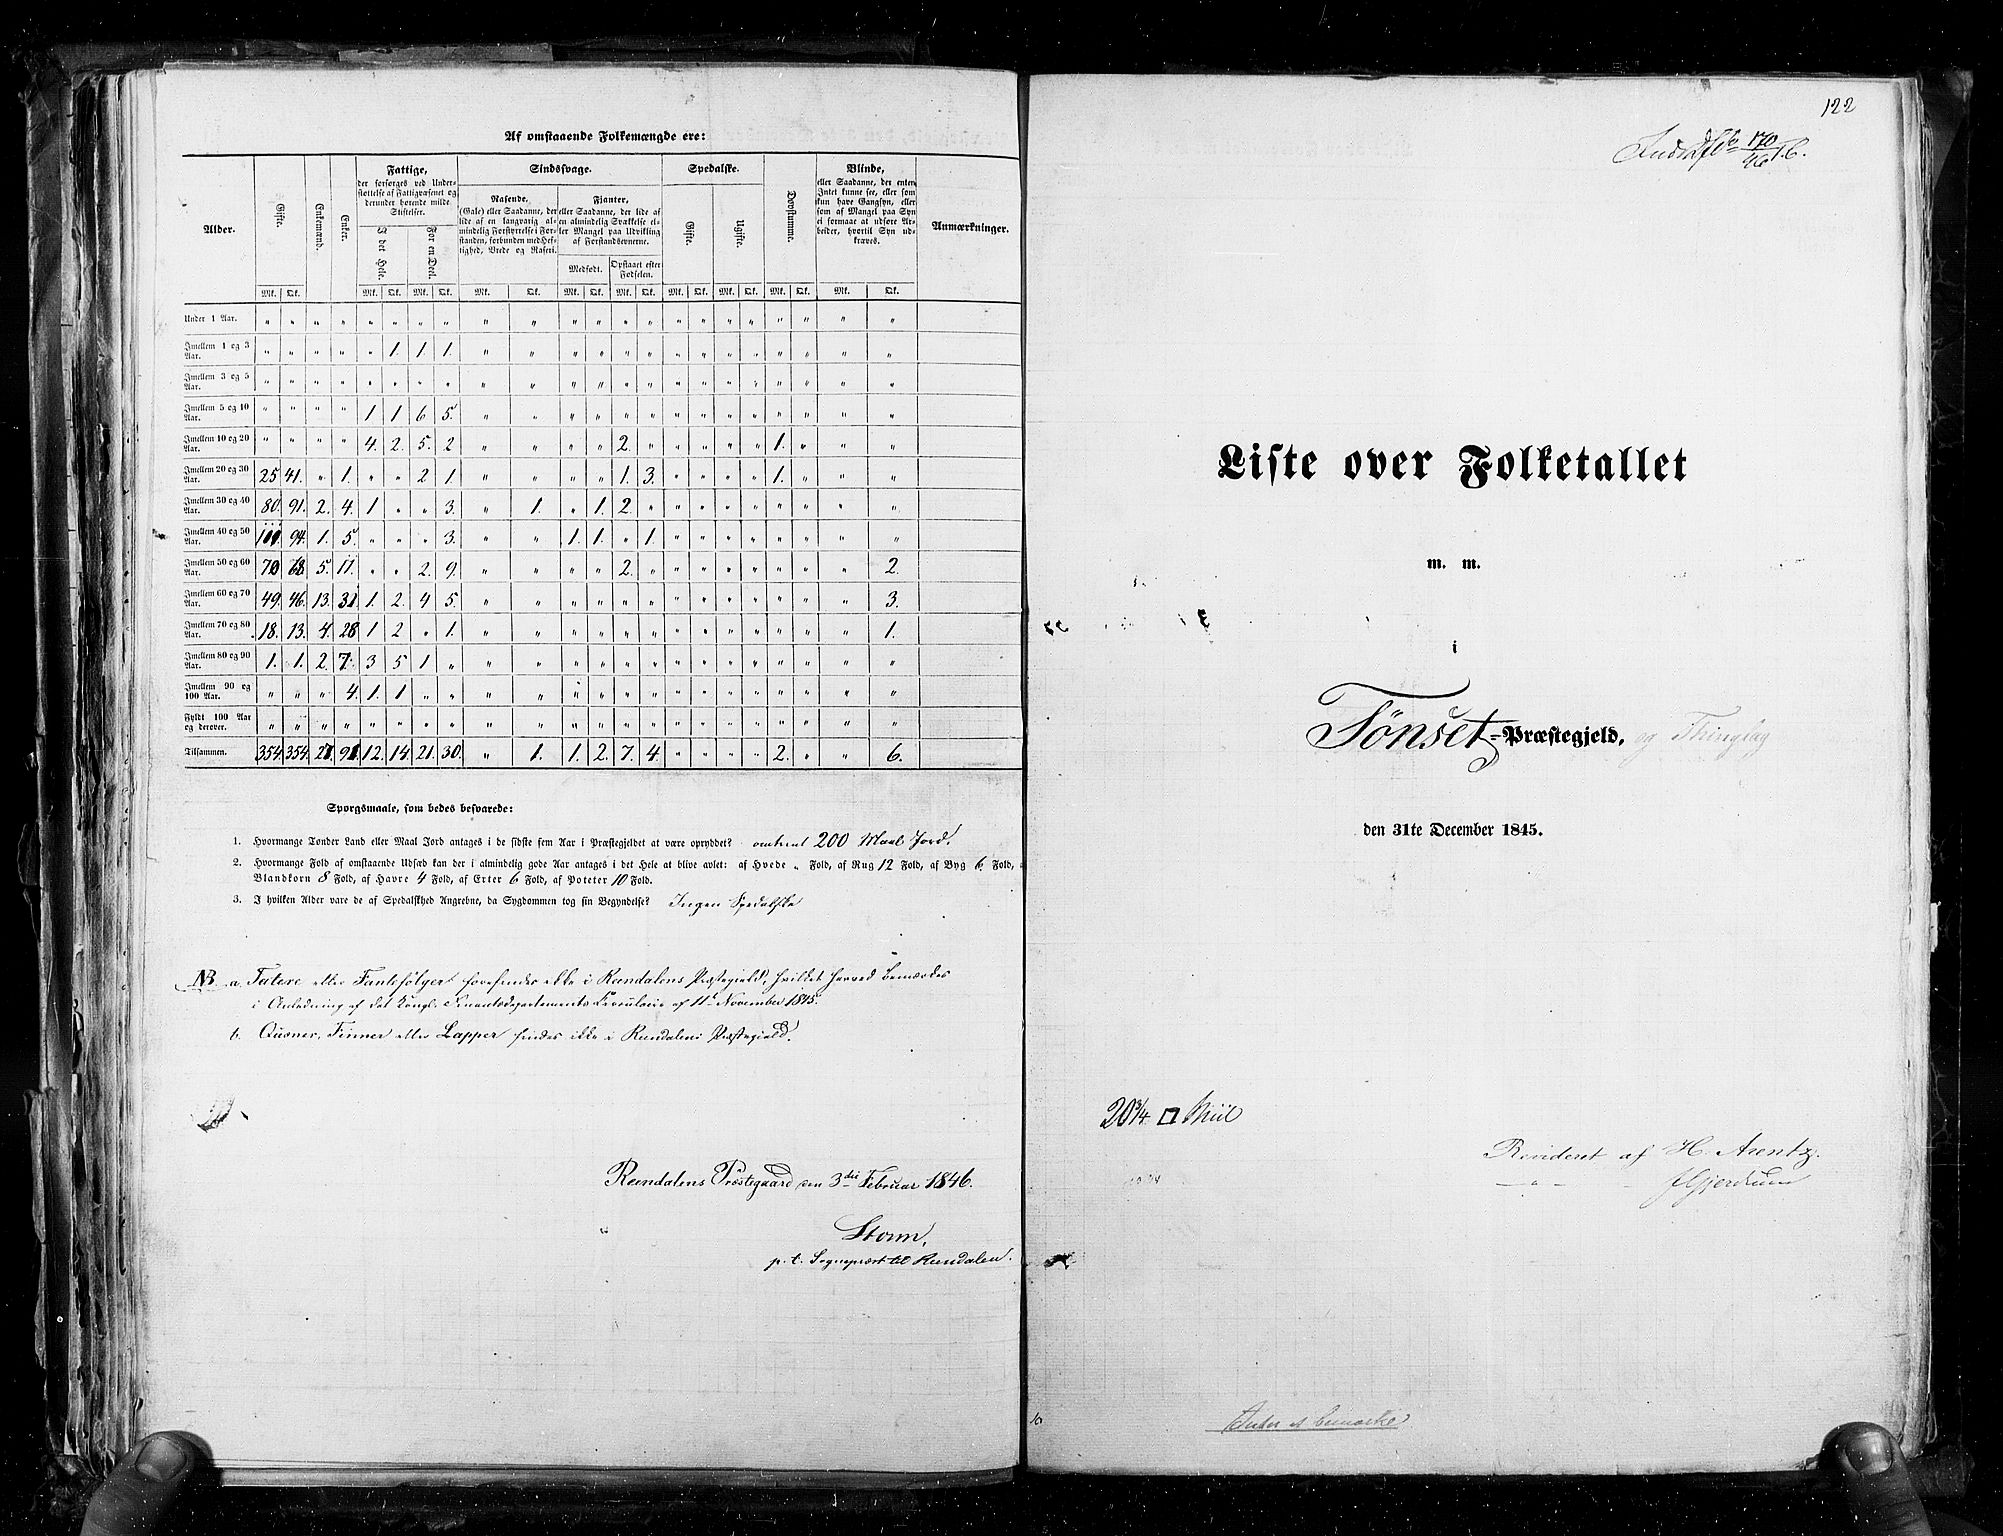 Af omstaaende Folkemængde ere:
Alder. Gifte. Enkemænd. Enker. Fattige, der forsørges ved Understøttelse af Fattigvæsenet og derunder hørende milde Stiftelser. Sindssvage. Spedalske. Døvstumme. Blinde, eller Saadanne, der enten Intet kunne see, eller som kun have Gangsyn, eller som af Mangel paa Syn ei formaae at udføre Arbeider, hvortil Syn udkræves. Anmærkninger.
I det Hele. For en Deel. Rasende, (Gale) eller Saadanne, der lide af en langvarig almindelig Forstyrrelse i Forstanden, forbunden med Heftighed, Vrede og Raseri. Fianter, eller Saadanne, der lide af en almindelig Svækkelse eller Mangel paa Udvikling af Forstandsevnerne. Gifte. Ugifte.
Medfødt. Opstaaet efter Fødselen.
Mk. Qk. Mk. Qk. Mk. Qk. Mk. Qk. Mk. Qk. Mk. Qk. Mk. Qk. Mk. Qk. Mk. Qk. Mk. Qk.
Under 1 Aar. " " " " " " " " " " " " " " " " " " " " " "
Imellem 1 og 3 Aar. " " " " " 1. 1. 1. " " " " " " " " " " " " " "
Imellem 3 og 5 Aar. " " " " " " " " " " " " " " " " " " " " " "
Imellem 5 og 10 Aar. " " " " 1 1 6 5. " " " " " " " " " " " " " "
Imellem 10 og 20 Aar. " " " " 4. 2. 5. 2 " " " " 2. " " " " " 1. " " "
Imellem 20 og 30 Aar. 25 41. " 1. " " 2 1 " " " " 1. 3. " " " " 1. " " "
Imellem 30 og 40 Aar. 80. 91. 2. 4. 1 " " 3. " 1. " 1. 2. " " " " " " " " "
Imellem 40 og 50 Aar. 94. 1. 5. " " " 3. " " 1. 1. " 1. " " " " " " " "
Imellem 50 og 60 Aar. 70 68 5. 11. " " 2. 9. " " " " 2. " " " " " " " " 2.
Imellem 60 og 70 Aar. 49. 46. 13. 31 1. 2. 4 5. " " " " " " " " " " " " " 3.
Imellem 70 og 80 Aar. 18. 13. 4. 28 1 2 " 1. " " " " " " " " " " " " " 1.
Imellem 80 og 90 Aar. 1. 1. 2. 7. 3 5 1 " " " " " " " " " " " " " " "
Imellem 90 og 100 Aar. " " " 4. 1. 1 " " " " " " " " " " " " " " " "
Fyldt 100 Aar og derover. " " " " " " " " " " " " " " " " " " " " " "
Tilsammen. 354. 354. 12. 14. 21. 30. " 1. 1. 2. 7. 4. " " " " 2. " " 6.
Spørgsmaale, som bedes besvarede:
1. Hvormange Tønder Land eller Maal Jord antages i de sidste fem Aar i Præstegjeldet at være opryddet? omtrent 200 Maal Jord.
2. Hvormange Fold af omstaaende Udsæd kan der i almindelig gode Aar antages i det Hele at blive avlet: af Hvede " Fold, af Rug 12 Fold, af Byg 6 Fold,
Blandkorn 8 Fold, af Havre 4 Fold, af Erter 6 Fold, af Poteter 10 Fold.
3. I hvilken Alder vare de af Spedalskhed Angrebne, da Sygdommen tog sin Begyndelse? Ingen Spedalske
NB a. Tatere eller Fantefølger forefindes ikke i Rendalens Præstegield, hvilket herved bemærkes
i Anledning af det Kongl. Finantsdepartements Circulaire af 11te November 1845.
b. Qvæner, Finner eller Lapper findes ikke i Rendalens Præstegield.
Rendalens Præstegaard den 3die Februar 1846.
Storm,
p. t. Sognepræst til Rendalen.
122
170
46
Liste over Folketallet
m. m.
i
Tønset-Præstegjeld, og Thinglag
den 31te December 1845.
20¾ □ Miil
Revideret af H. Arentz.
—"— JGjerdrum